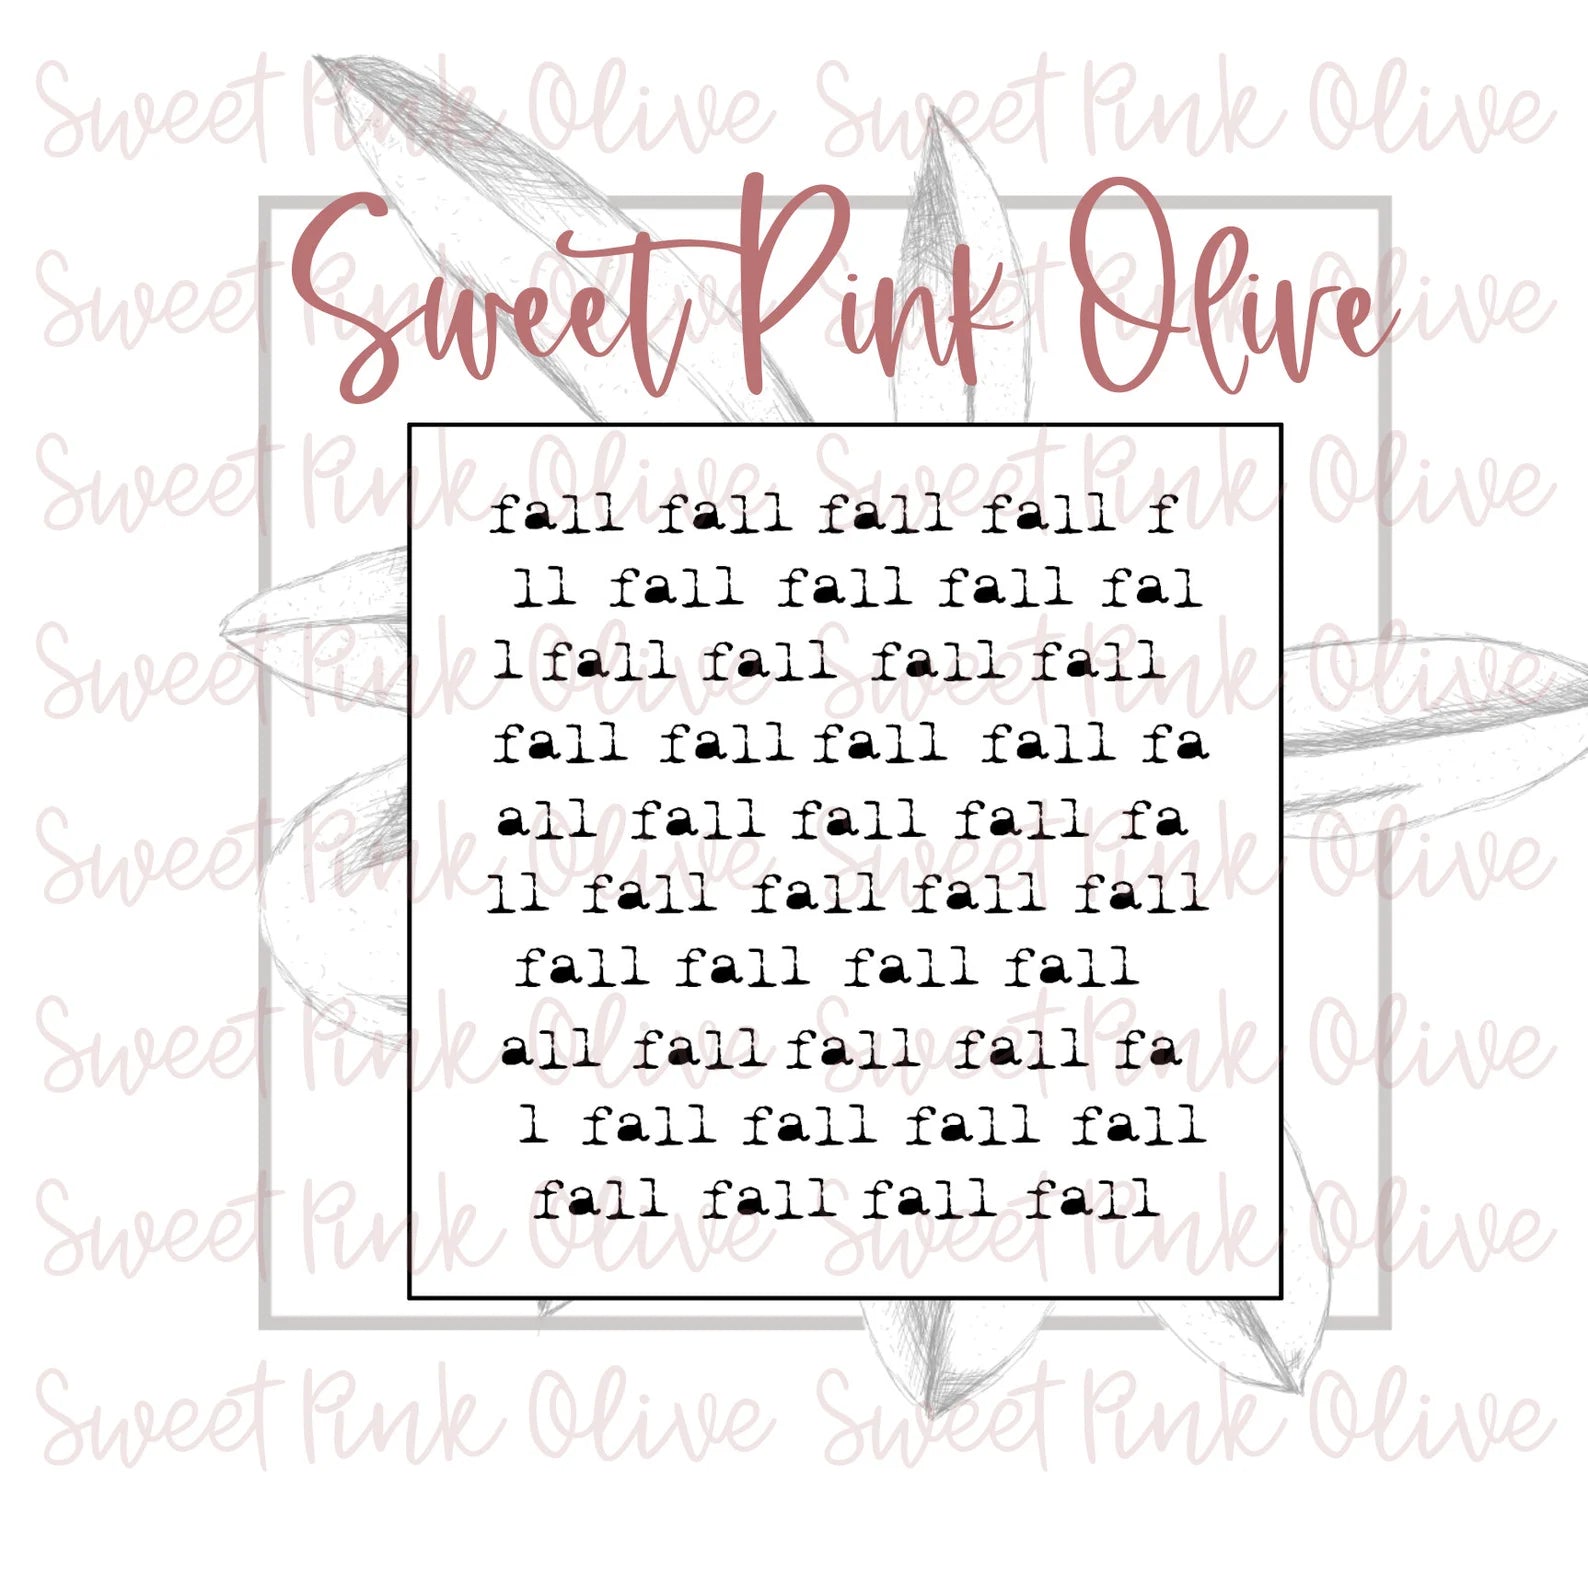 Sweet Pink Olive Sweet Pink Olive
Sweet Pink Olive
Sweet Pink Olive Sweet Pink Olive
Sweet Pink Olive Sweet Pink Olive
fall fall fall fall f
ll fall fall fall fal
l fall fall fall fall
Sweet Pink Olive Sweet Pink Olive
fall fall fall fall fa
all fall fall fall fa
Sweet Pink Olive Sweet Pink Olive
ll fall fall fall fall
fall fall fall fall
all fall fall fall fa
Sweet Pink Olive Sweet Pink Olive
l fall fall fall fall
fall fall fall fall
Sweet Pink Olive Sweet Pink Olive
Sweet Pink Olive Sweet Pink Olive